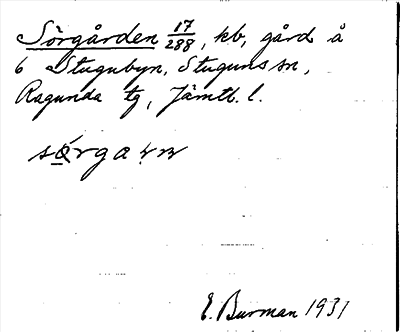 Sörgården 17/288, kb, gård å
6 Stugubyn, Stuguns sn,
Ragunda tg, Jämtl. l.
E. Burman 1931